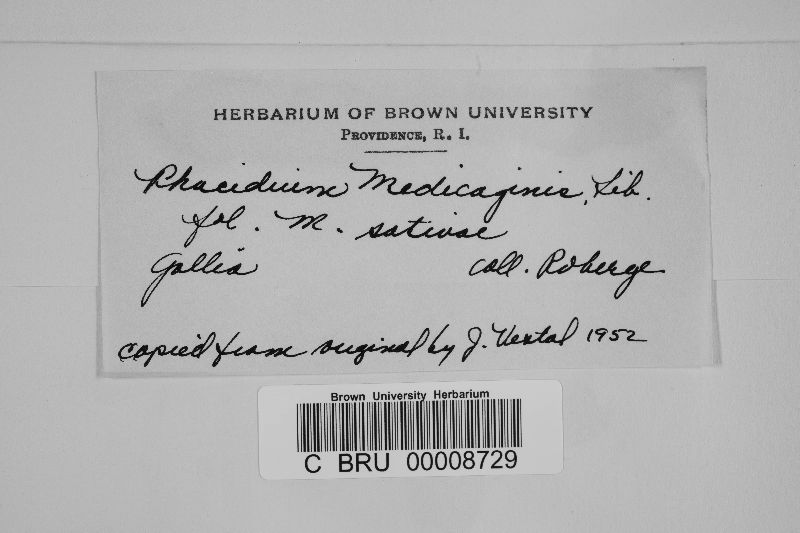 HERBARIUM OF BROWN UNIVERSITY
PROVIDENCE, R. I.
Phacidium Medicaginis, Lib.
fol. M. sativae
Gallia coll. Roberge
copied from original by J. Vestal 1952
Brown University Herbarium
C BRU 00008729